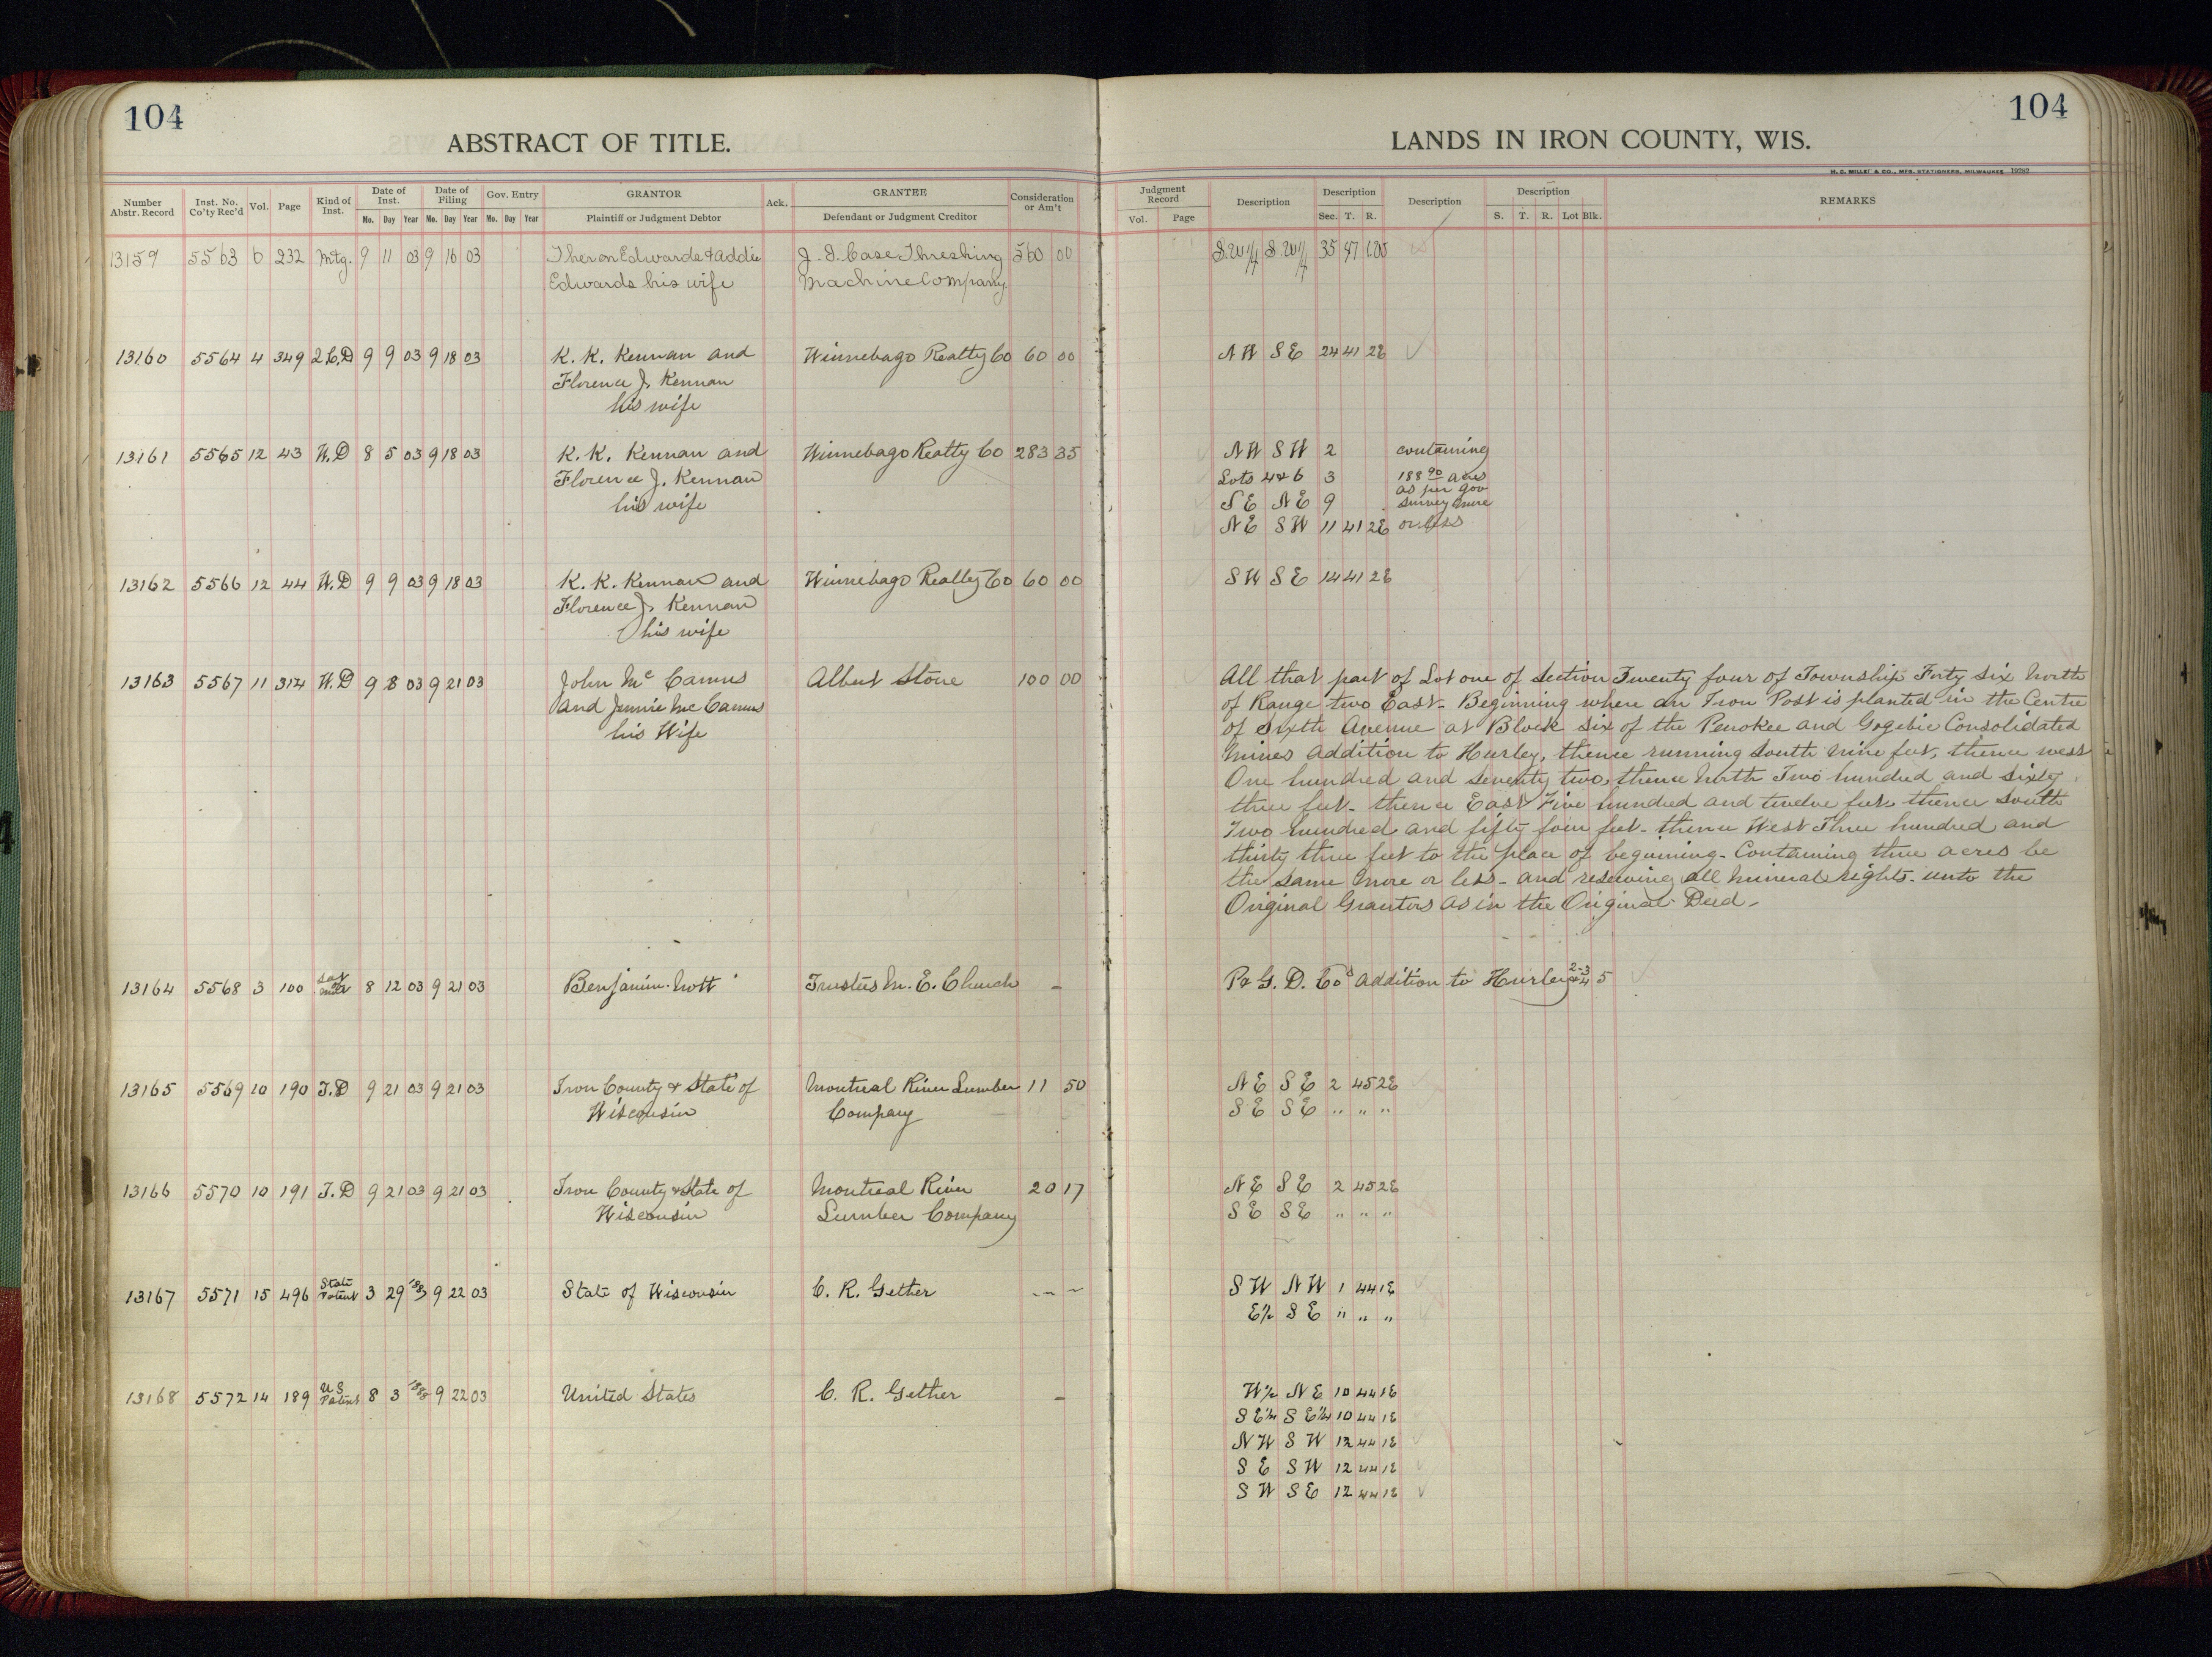 104
ABSTRACT OF TITLE.
Number Abstr. Record | Inst. No. Co'ty Rec'd | Vol. | Page | Kind of Inst. | Date of Inst. Mo. Day Year | Date of Filing Mo. Day Year | Gov. Entry Mo. Day Year | GRANTOR Plaintiff or Judgment Debtor | Ack. | GRANTEE Defendant or Judgment Creditor | Consideration or Am't
13159 5563 6 232 Mtg. 9 11 03 9 16 03 Theron Edwards & Addie J. I. Case Threshing 560 00
Edwards his wife Machine Company.
13160 5564 4 349 2 C.D 9 9 03 9 18 03 K. K. Kennan and Winnebago Realty Co 60 00
Florence J. Kennan
his wife
13161 5565 12 43 W.D 8 5 03 9 18 03 K. K. Kennan and Winnebago Realty Co 283 35
Florence J. Kennan
his wife
13162 5566 12 44 W.D 9 9 03 9 18 03 K. K. Kennan and Winnebago Realty Co 60 00
Florence J. Kennan
his wife
13163 5567 11 314 W.D 9 8 03 9 21 03 John Mc Camus Albert Stone 100 00
and Jennie Mc Camus
his Wife
13164 5568 3 100 8 12 03 9 21 03 Benjamin Nott Trustees M. E. Church –
13165 5569 10 190 T.D 9 21 03 9 21 03 Iron County & State of Montreal River Lumber 11 50
Wisconsin Company
13166 5570 10 191 T.D 9 21 03 9 21 03 Iron County & State of Montreal River 20 17
Wisconsin Lumber Company
13167 5571 15 496 State Patent 3 29 9 22 03 State of Wisconsin C. R. Gether – –
13168 5572 14 189 U S Patent 8 3 9 22 03 United States C. R. Gether –
104
LANDS IN IRON COUNTY, WIS.
H. C. MILLER & CO., MFG. STATIONERS, MILWAUKEE 19282
Judgment Record Vol. Page | Description | Description Sec. T. R. | Description | Description S. T. R. Lot Blk. | REMARKS
S.W¼ S.W¼ 35 47
N W S E 24 41 2E
N W S W 2 containing
Lots 4 & 6 3 188 90 acres
as per gov
S E N E 9 survey more
N E S W 11 41 2E or less
S W S E 14 41 2E
All that part of Lot one of section Twenty four of Township Forty six North
of Range two East- Beginning where an Iron Post is planted in the Centre
of Sixth Avenue at Block six of the Penokee and Gogebic Consolidated
Mines addition to Hurley, thence running South Nine feet, thence west
One hundred and seventy two, thence North Two hundred and sixty
three feet- thence East Five hundred and twelve feet, thence South
Two hundred and fifty four feet- thence West Three hundred and
thirty three feet to the place of beginning- Containing three acres be
the same more or less- and reserving all Mineral rights- unto the
Original Grantors as in the Original Deed-
P & G. D. Cos addition to Hurley 2-3 & 4 5
N E S E 2 45 2E
S E S E " " "
N E S E 2 45 2E
S E S E " " "
S W N W 1 44 1E
E½ S E " " "
W½ N E 10 44 1E
S E¼ S E¼ 10 44 1E
N W S W 12 44 1E
S E S W 12 44 1E
S W S E 12 44 1E